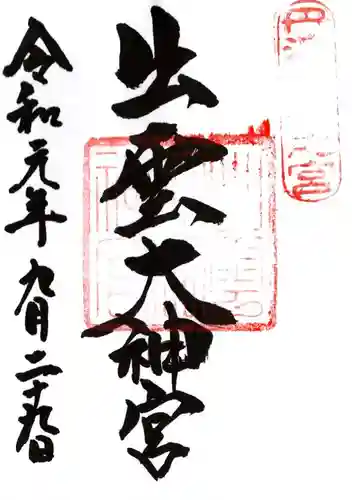 出雲大神宮
令和元年九月二十九日